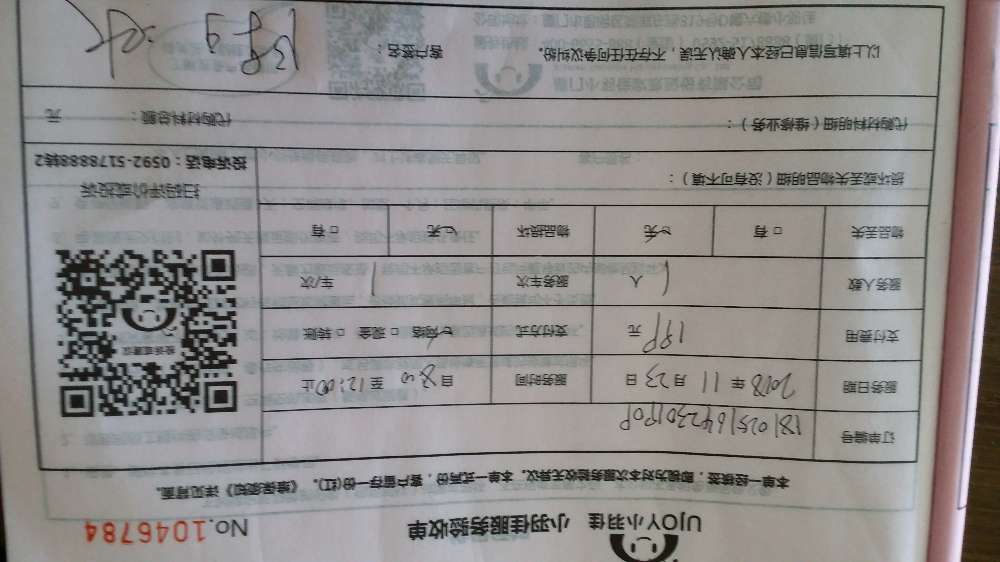 UJOY小羽佳 小羽佳服务验收单 No.1046784
本单一经核签，即视为对本次服务验收无异议。本单一式两份，客户留存一份(红)。《维保须知》详见背面。
订单编号
服务日期 2018年11月23日 服务时间 自8:00至12:00止
支付费用 198元 支付方式 网络 □现金 □转账
服务人数 1人 服务车次 1车/次
物品丢失 □有 无 物品损坏 无 □有
损坏或丢失物品明细（没有可不填）：
扫码评价或投诉
投诉电话：0592-5178888转2
代购材料明细（维修业务）： 代购材料总额： 元
以上填写信息已经本人确认无误，不存在任何争议纠纷。 客户签名：